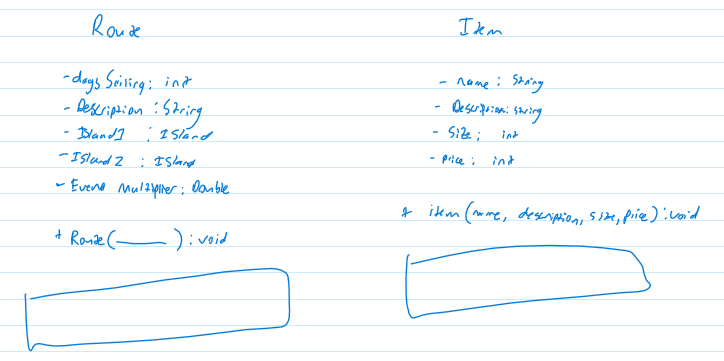 Route
- days Sailing : int
- Description : String
- Island 1 : Island
- Island 2 : Island
- Event Multiplier : Double
+ Route ( ______ ) : void
Item
- name : String
- Description : string
- Size : int
- price : int
+ item (name, description, size, price) : void